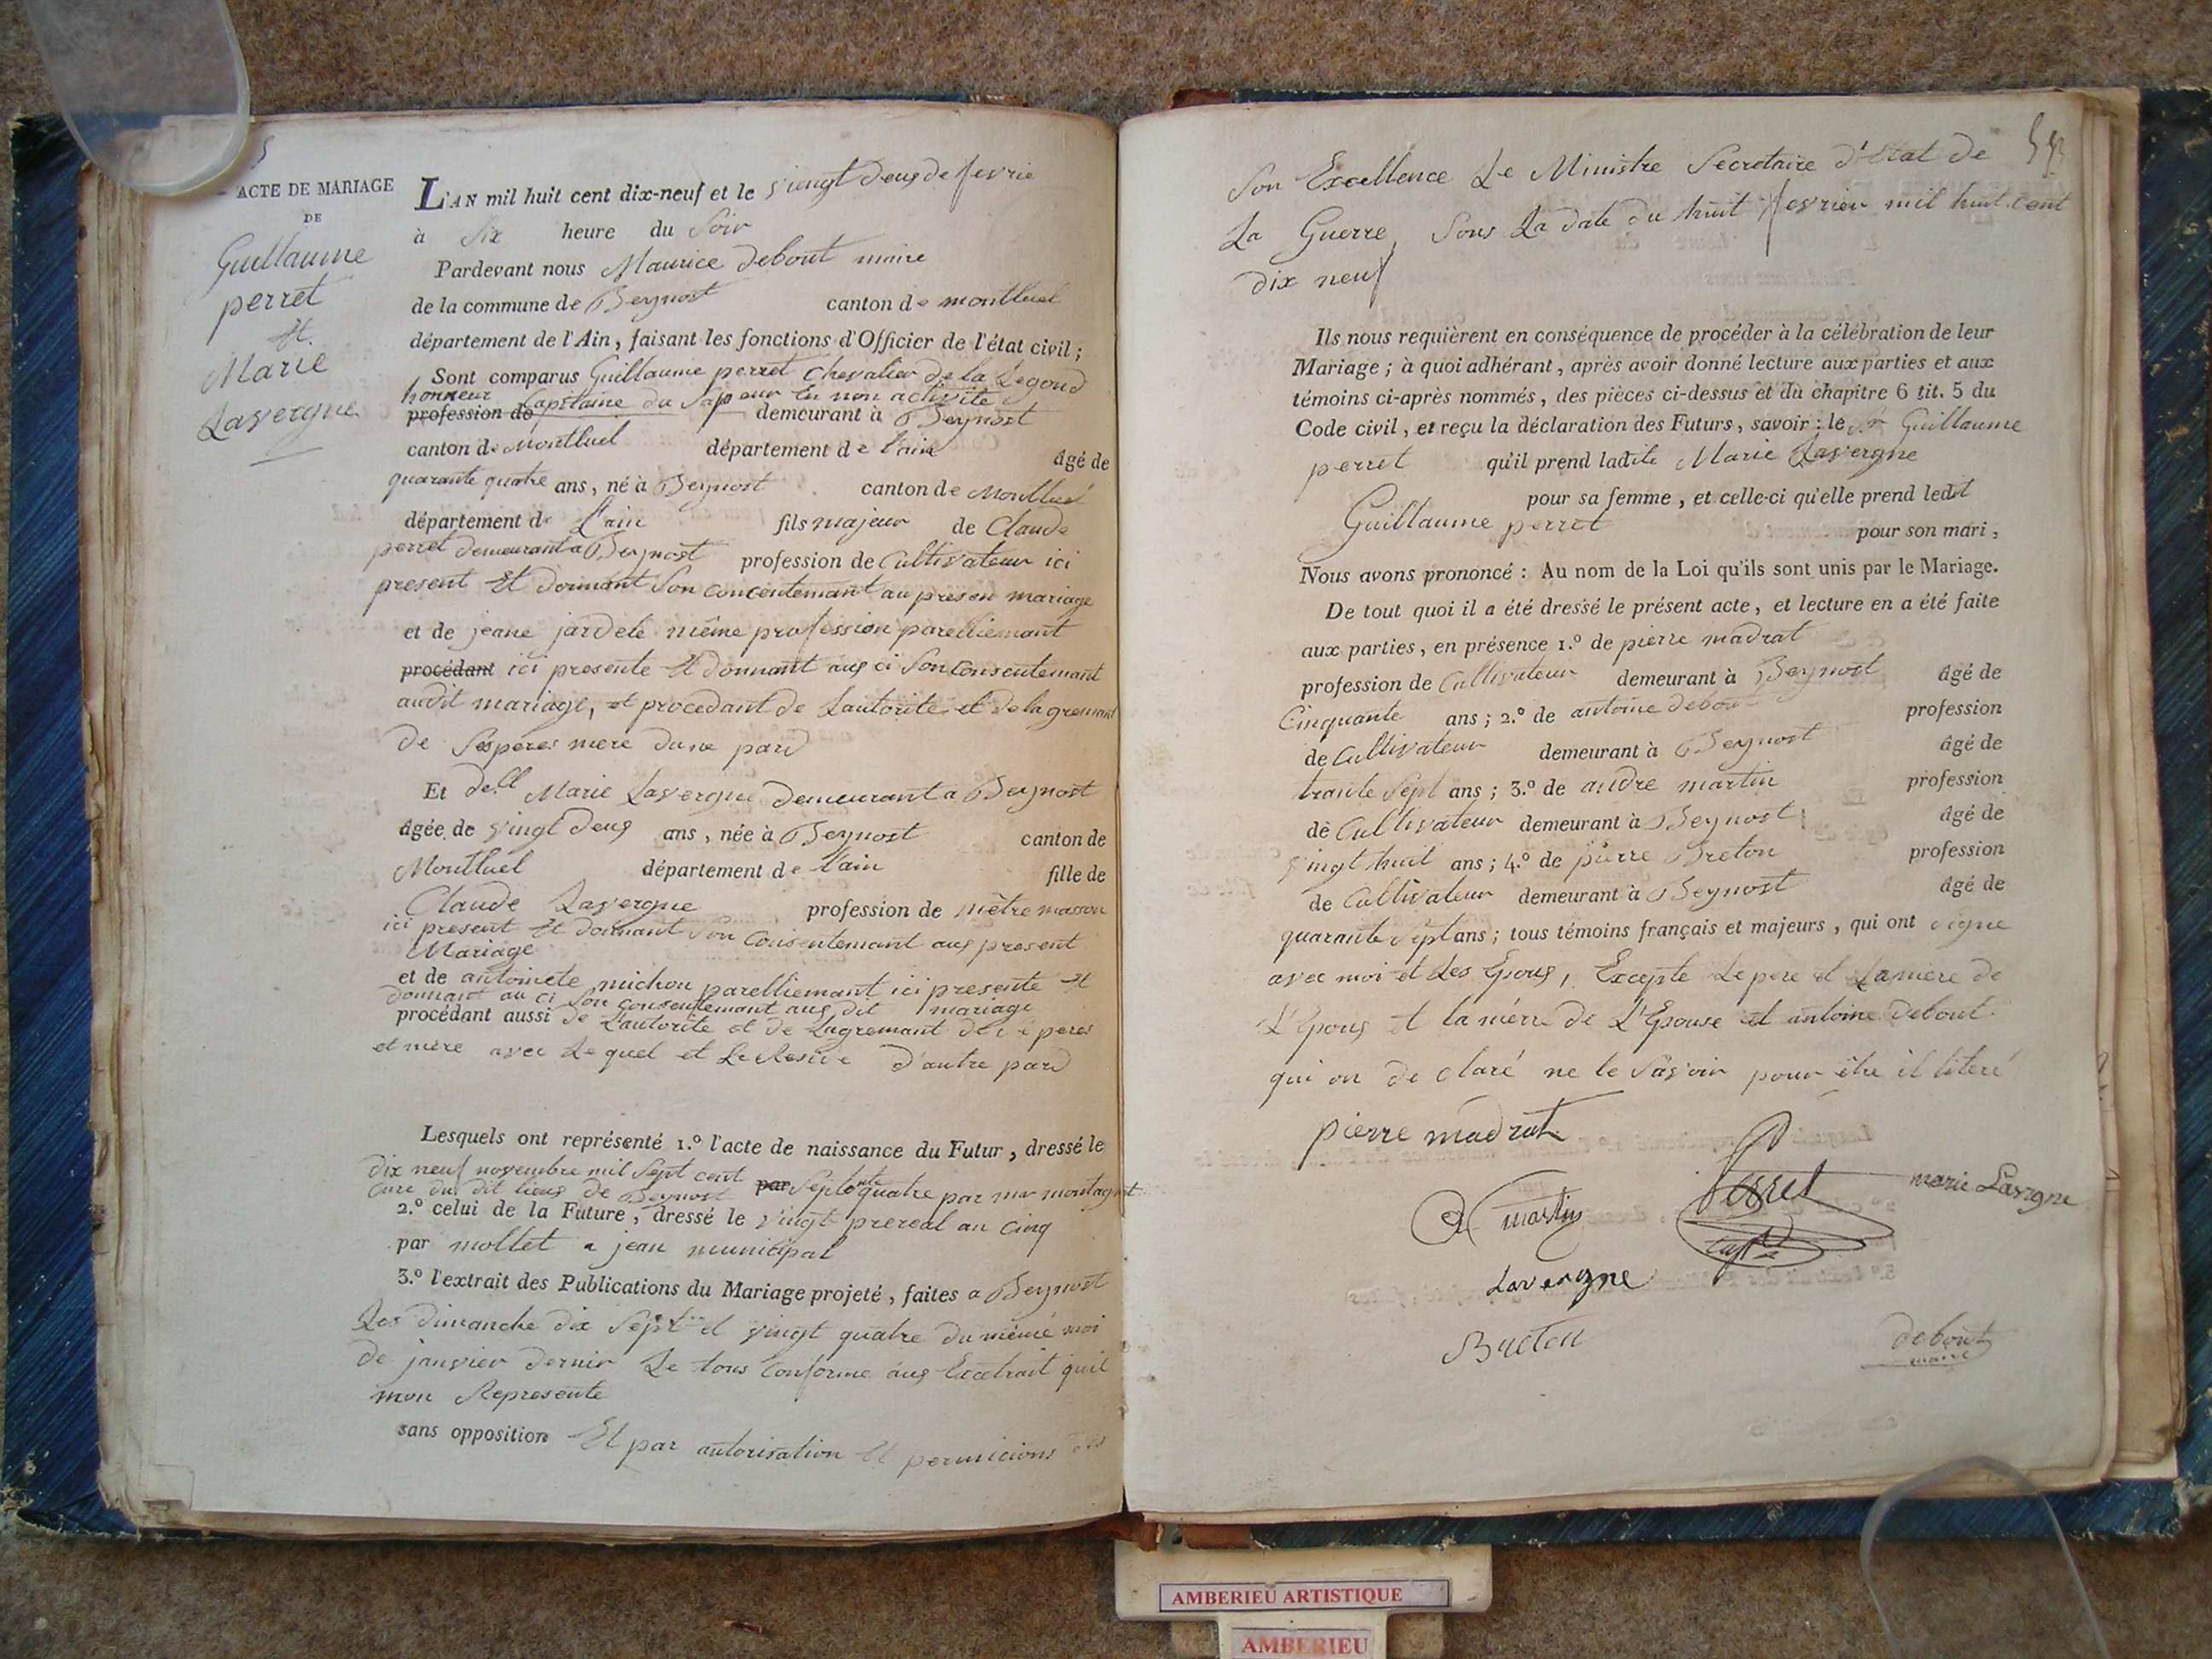 5
ACTE DE MARIAGE
DE
Guillaume
perret
Et
Marie
Lavergne
L'AN mil huit cent dix-neuf et le vingt deus de fevrie
à Six heure du Soir
Pardevant nous Maurice debout maire
de la commune de Beynost canton de montluel
département de l'Ain, faisant les fonctions d'Officier de l'état civil;
Sont comparus Guillaume perret Chevalier de la Legond
honneur Capitaine du Sapeur En non activite
profession de demeurant à Beynost
canton de Montluel département de l'ain âgé de
quarante quatre ans, né à Beynost canton de Montluel
département de L'ain fils majeur de Claude
perret demeurant a Beynost profession de Cultivateur ici
present Et donnant Son concentemant au presen mariage
et de jeane jardele même profession parelliemant
procédant ici presente Et donnant aus ci Son consentemant
audit mariage, et procedant de Lautorite et de la gremant
de Ses peres mere dune pard
Et de.ll Marie Lavergne demeurant a Beynost
âgée de vingt deus ans, née à Beynost canton de
Montluel département de l'ain fille de
Claude Lavergne profession de mètre masson
ici present Et donnant Son Consentemant aus present
Mariage
et de antoinete michon parelliemant ici presente Et
donnant au ci Son consentemant aus dit mariage
procédant aussi de L'autorite et de Lagremant de peres
et mère avec Lequel et Le Reside d'autre pard
Lesquels ont représenté 1.º l'acte de naissance du Futur, dressé le
dix neuf novembre mil Sept cent par Septente quatre par mr montagnat
Cure du dit lieus de Beynost
2.º celui de la Future, dressé le vingt prereal an Cinq
par mollet a jean municipal
3.º l'extrait des Publications du Mariage projeté, faites a Beynost
Les dimanche dix Sept et vingt quatre du même moi
de janvier dernir Le tous Conforme aus Excetrait quil
mon Represente
sans opposition Et par autorisation Et permicions
Son Excellence Le Ministre Secretaire d'Etat de
La Guerre, Sous La date du huit fevrier mil huit cent
dix neuf
Ils nous requièrent en conséquence de procéder à la célébration de leur
Mariage; à quoi adhérant, après avoir donné lecture aux parties et aux
témoins ci-après nommés, des pièces ci-dessus et du chapitre 6 tit. 5 du
Code civil, et reçu la déclaration des Futurs, savoir: le Sr Guillaume
perret qu'il prend ladite Marie Lavergne
pour sa femme, et celle-ci qu'elle prend ledit
Guillaume perret pour son mari,
Nous avons prononcé: Au nom de la Loi qu'ils sont unis par le Mariage.
De tout quoi il a été dressé le présent acte, et lecture en a été faite
aux parties, en présence 1.º de pierre madrat
profession de Cultivateur demeurant à Beynost âgé de
Cinquante ans; 2.º de antoine debout profession
de Cultivateur demeurant à Beynost âgé de
trante Sept ans; 3.º de andre martin profession
de Cultivateur demeurant à Beynost âgé de
vingt huit ans; 4.º de pierre Breton profession
de Cultivateur demeurant à Beynost âgé de
quarante Sept ans; tous témoins français et majeurs, qui ont signe
avec moi et Les Epous, Excepte Le pere et La mere de
L'Epous et la mère de L'Epouse et antoine debout
qui on declaré ne le Savoir pour être il literé
pierre madrat
martin
Perret
marie Lavrgne
Lavergne
Breton
debout
maire
AMBERIEU ARTISTIQUE
AMBERIEU